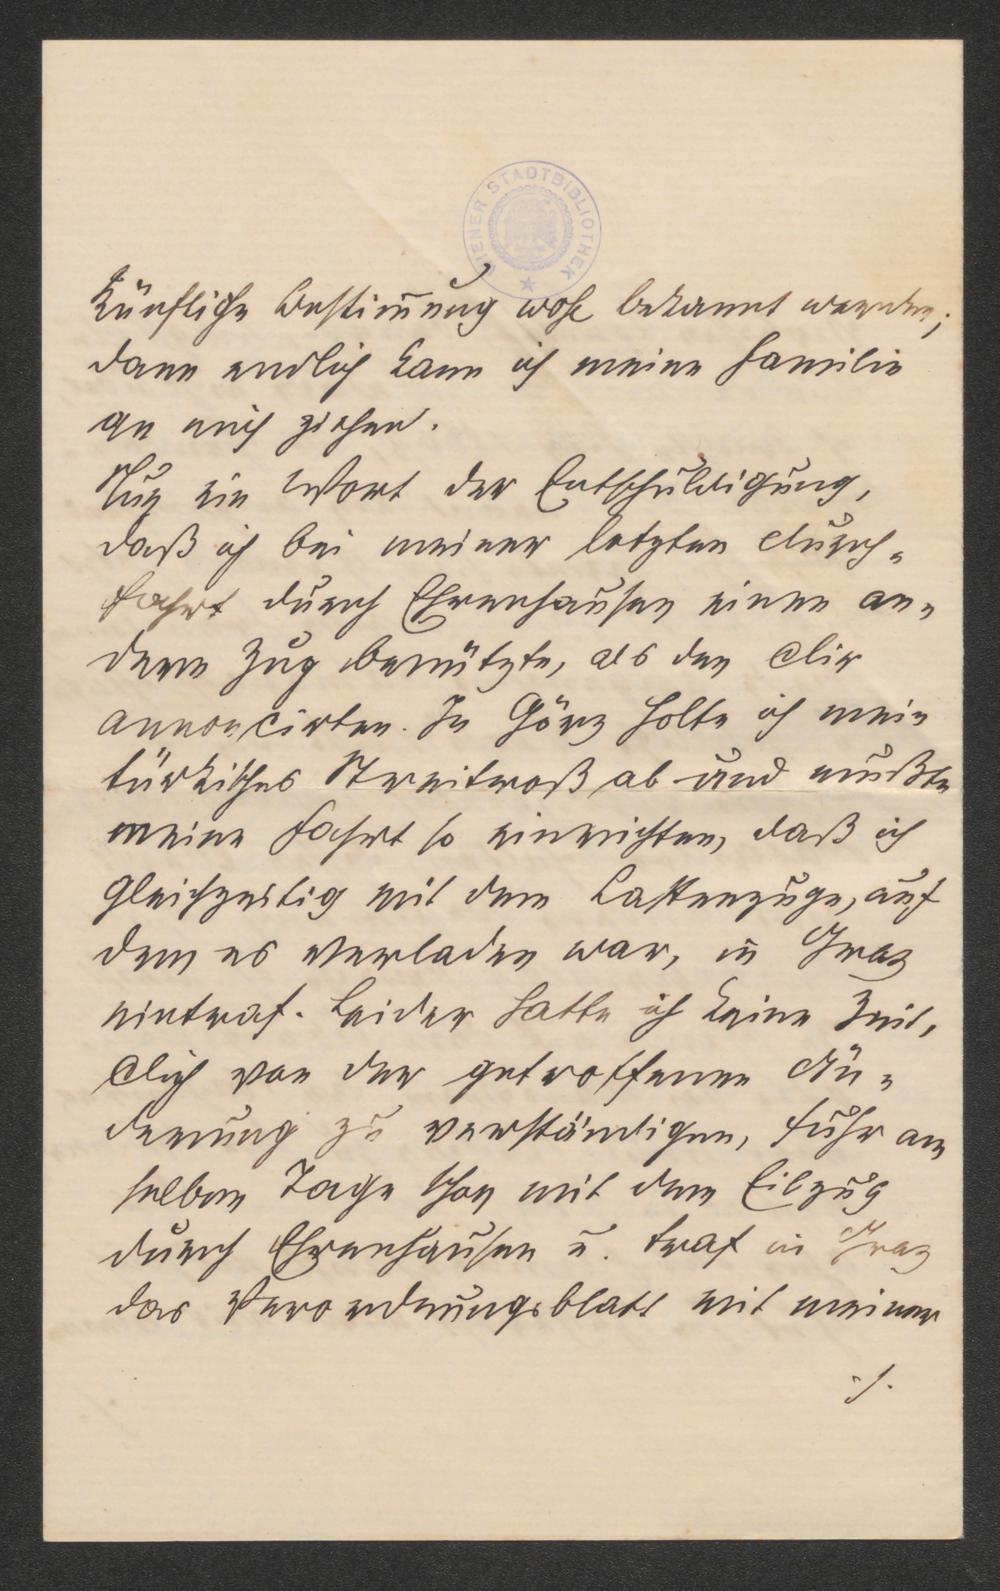 WIENER STADTBIBLIOTHEK
künftige Bestim̄ung wohl bekannt werden;
dann endlich kann ich meine Familie
an mich ziehen.
Nun ein Wort der Entschuldigung,
daß ich bei meiner letzten Durch-
fahrt durch Ehrenhausen einen an-
dern Zug benützte, als den Dir
annoncirten. In Görz holte ich mein
türkisches Streitroß ab und mußte
meine Fahrt so einrichten, daß ich
gleichzeitig mit dem Lastenzuge, auf
dem es verladen war, in Graz
eintraf. Leider hatte ich keine Zeit,
Dich von der getroffenen Än-
derung zu verständigen, fuhr am
selben Tage schon mit dem Eilzug
durch Ehrenhausen u. traf in Graz
das Verordnungsblatt mit meiner
./.